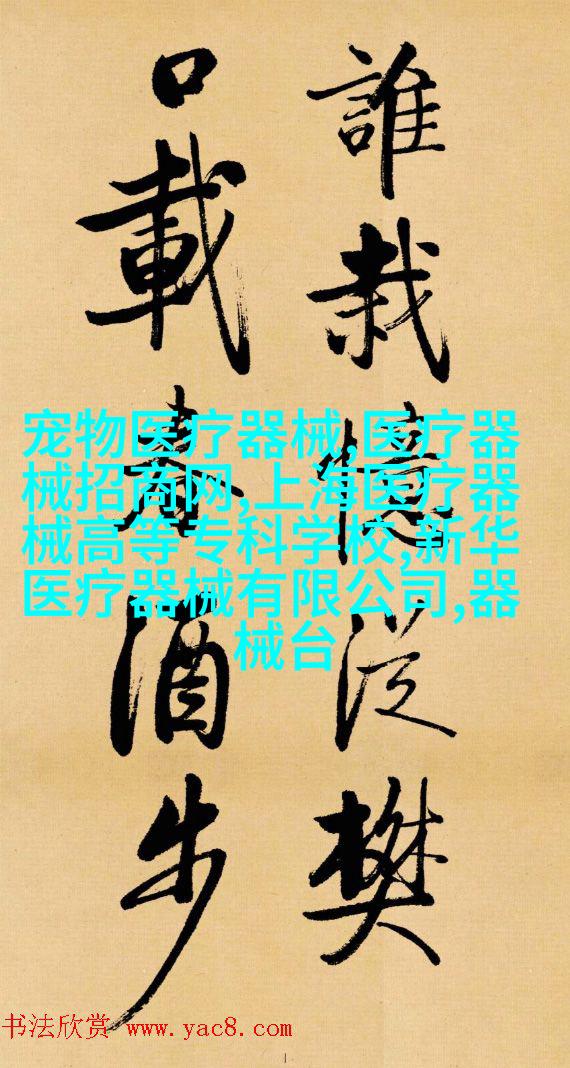 誰栽憶泛樊
口載春酒步
宠物医疗器械,医疗器
械招商网,上海医疗器
械高等专科学校,新华
医疗器械有限公司,器
械台
书法欣赏 www.yac8.com